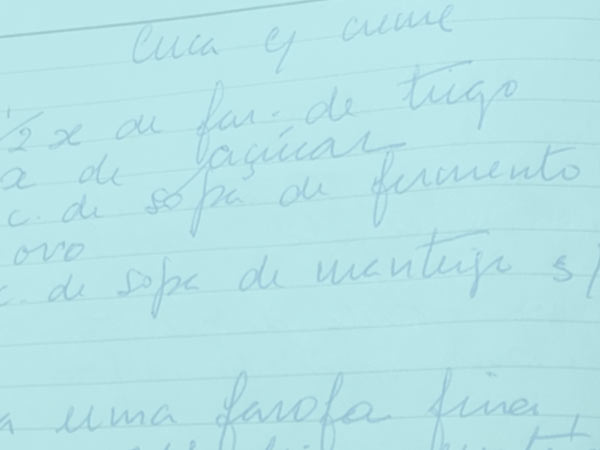 Cuca c/ creme
1/2 x de far. de trigo
de açúcar
c. de sopa de fermento
ovo
c. de sopa de manteiga s/
uma farofa fina